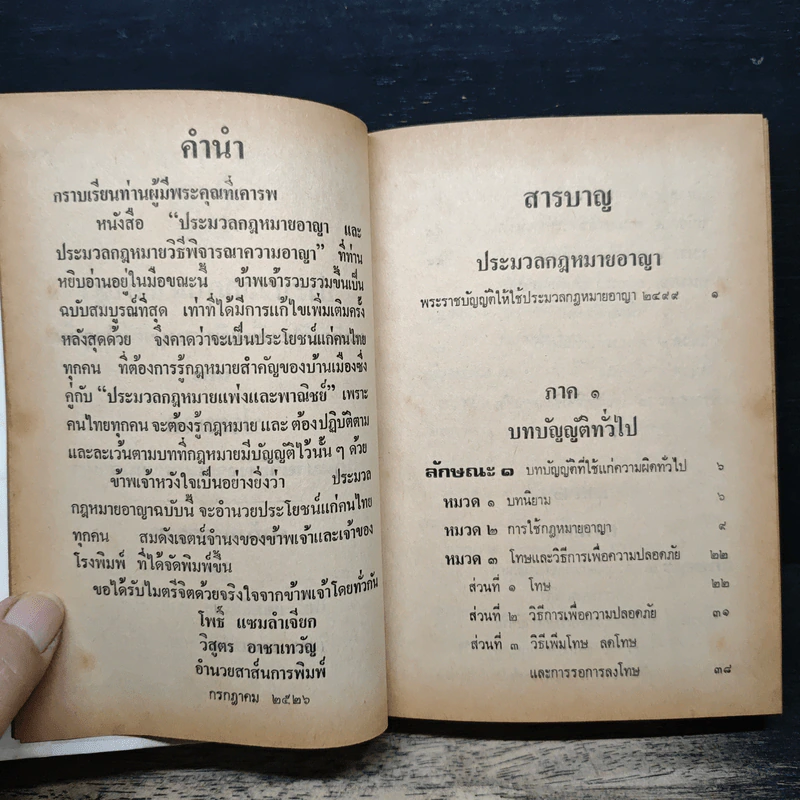 คำนำ
กราบเรียนท่านผู้มีพระคุณที่เคารพ
หนังสือ “ประมวลกฎหมายอาญา และ
ประมวลกฎหมายวิธีพิจารณาความอาญา” ที่ท่าน
หยิบอ่านอยู่ในมือขณะนี้ ข้าพเจ้ารวบรวมขึ้นเป็น
ฉบับสมบูรณ์ที่สุด เท่าที่ได้มีการแก้ไขเพิ่มเติมครั้ง
หลังสุดด้วย จึงคาดว่าจะเป็นประโยชน์แก่คนไทย
ทุกคน ที่ต้องการรู้กฎหมายสำคัญของบ้านเมืองซึ่ง
คู่กับ “ประมวลกฎหมายแพ่งและพาณิชย์” เพราะ
คนไทยทุกคน จะต้องรู้กฎหมาย และ ต้องปฏิบัติตาม
และละเว้นตามบทที่กฎหมายมีบัญญัติไว้นั้น ๆ ด้วย
ข้าพเจ้าหวังใจเป็นอย่างยิ่งว่า ประมวล
กฎหมายอาญาฉบับนี้ จะอำนวยประโยชน์แก่คนไทย
ทุกคน สมดังเจตน์จำนงของข้าพเจ้าและเจ้าของ
โรงพิมพ์ ที่ได้จัดพิมพ์ขึ้น
ขอได้รับไมตรีจิตด้วยจริงใจจากข้าพเจ้าโดยทั่วกัน
โพธิ์ แซมลำเจียก
วิสูตร อาชาเทวัญ
อำนวยสาส์นการพิมพ์
กรกฎาคม ๒๕๒๖
สารบาญ
ประมวลกฎหมายอาญา
พระราชบัญญัติให้ใช้ประมวลกฎหมายอาญา ๒๔๙๙ ๑
ภาค ๑
บทบัญญัติทั่วไป
ลักษณะ ๑ บทบัญญัติที่ใช้แก่ความผิดทั่วไป ๖
หมวด ๑ บทนิยาม ๖
หมวด ๒ การใช้กฎหมายอาญา ๙
หมวด ๓ โทษและวิธีการเพื่อความปลอดภัย ๒๒
ส่วนที่ ๑ โทษ ๒๒
ส่วนที่ ๒ วิธีการเพื่อความปลอดภัย ๓๑
ส่วนที่ ๓ วิธีเพิ่มโทษ ลดโทษ
และการรอการลงโทษ ๓๘